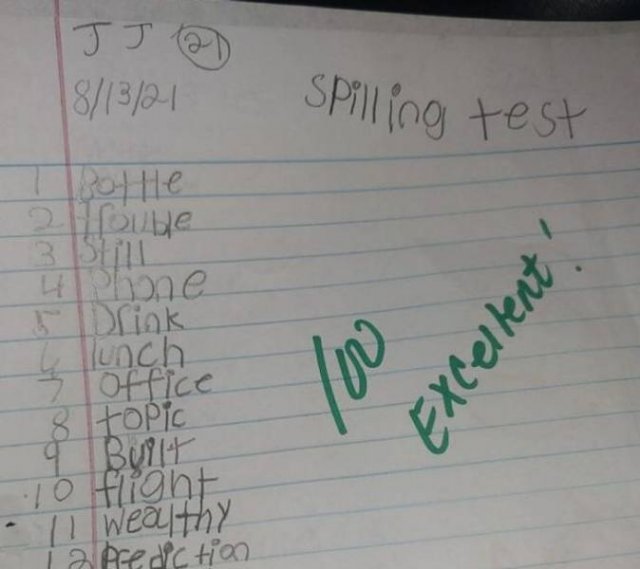 JJ 21
8/13/21
Spilling test
1 Bottle
2 trouble
3 Still
4 Phone
5 Drink
6 lunch
7 office
8 topic
9 Built
10 flight
11 wealthy
12 Prediction
100
Excellent!